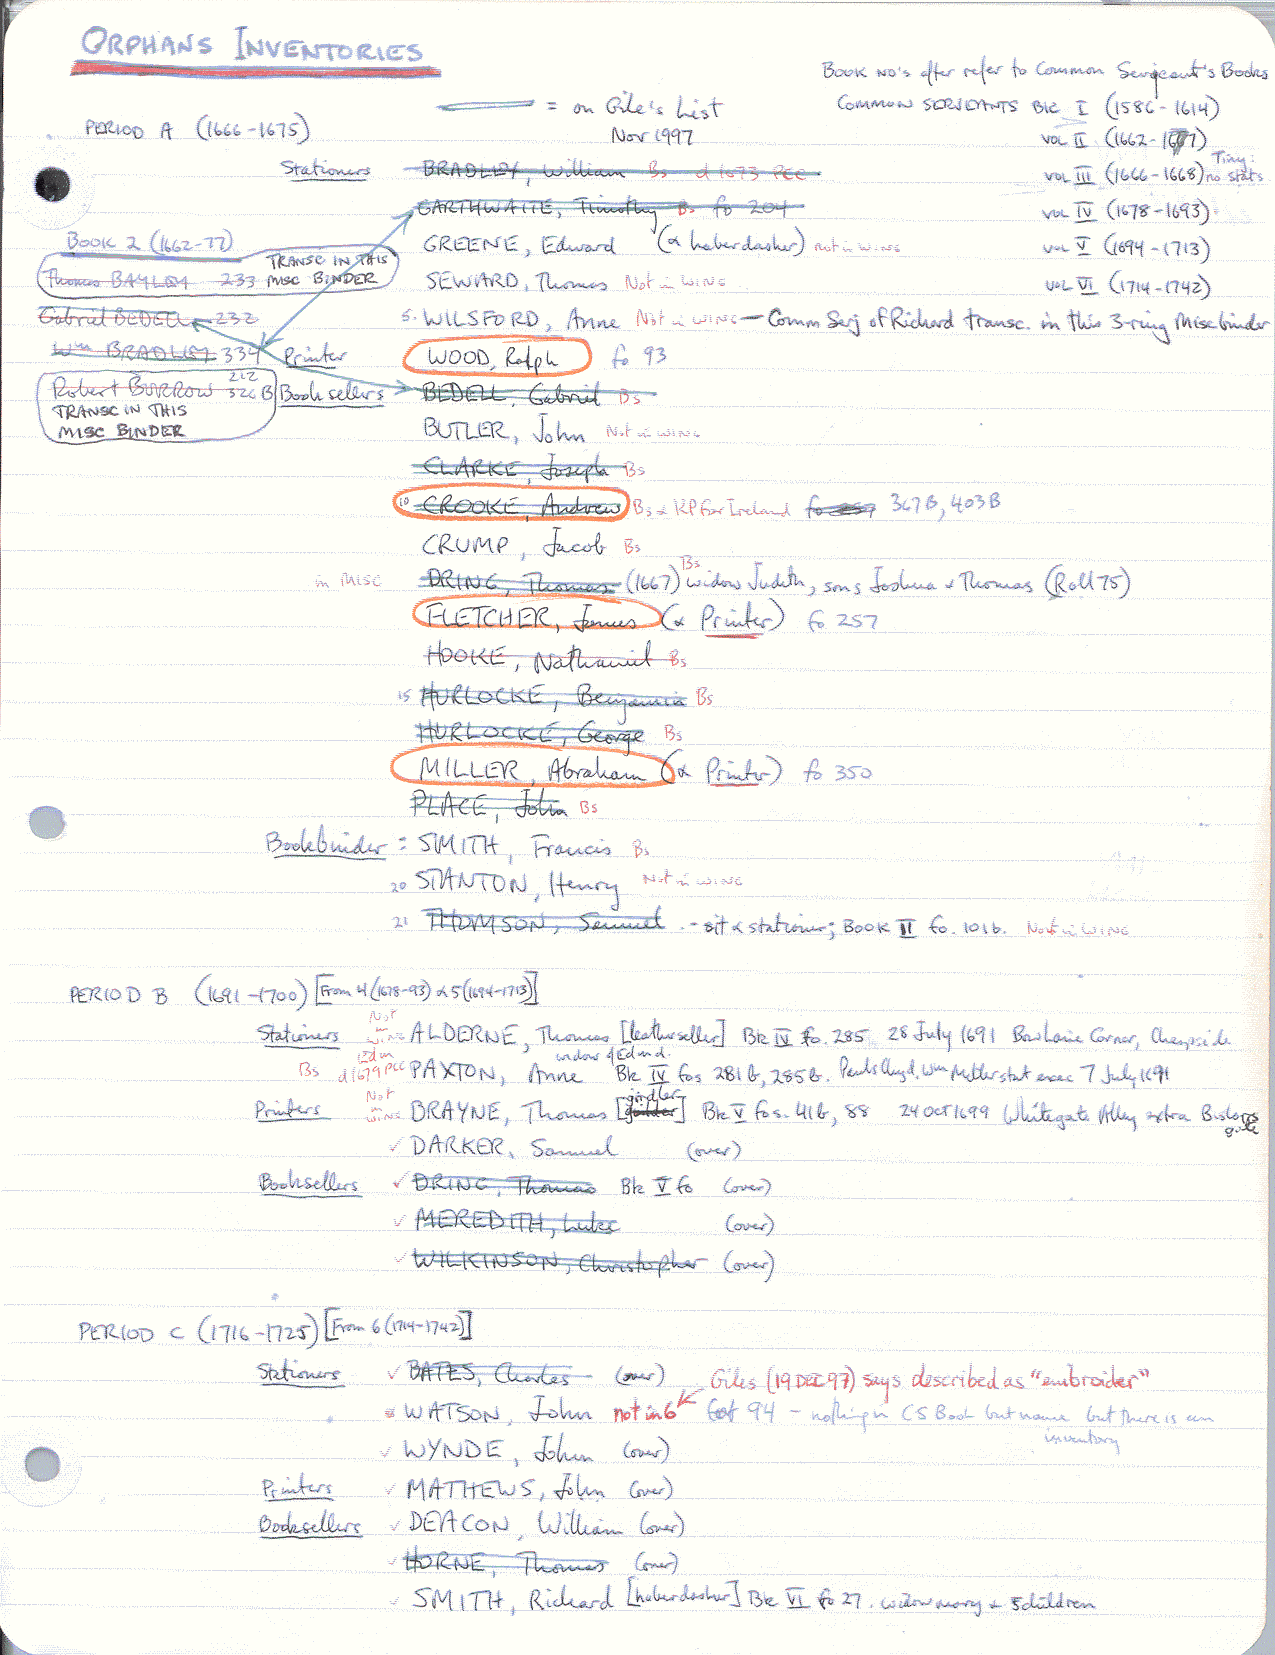 ORPHANS INVENTORIES
BOOK NO'S after refer to Common Serjeant's Books
= on Gile's List
Nov 1997
COMMON SERJEANTS BK I (1586-1614)
VOL II (1662-1677)
VOL III (1666-1668) Tiny: no stats
VOL IV (1678-1693)
VOL V (1694-1713)
VOL VI (1714-1742)
PERIOD A (1666-1675)
Stationers BRADLEY, William Bs d 1673 PCC
GARTHWAITE, Timothy Bs fo 204
GREENE, Edward (& haberdasher) not in WING
SEWARD, Thomas Not in WING
5. WILSFORD, Anne Not in WING - Comm Serj of Richard transc. in this 3-ring Misc binder
BOOK 2 (1662-77)
Thomas BAYLEY 233 TRANSC IN THIS MISC BINDER
Gabriel BEDELL 232
Wm BRADLEY 334
Robert BURROW 212 326B
TRANSC IN THIS
MISC BINDER
Printer WOOD, Ralph fo 93
Booksellers BEDELL, Gabriel Bs
BUTLER, John Not in WING
CLARKE, Joseph Bs
10 CROOKE, Andrew Bs & KP for Ireland fo 367B, 403B
CRUMP, Jacob Bs
in MISC DRING, Thomas (1667) Bs widow Judith, sons Joshua & Thomas (Roll 75)
FLETCHER, James (& Printer) fo 257
HOOKE, Nathaniel Bs
15 HURLOCKE, Benjamin Bs
HURLOCKE, George Bs
MILLER, Abraham (& Printer) fo 350
PLACE, John Bs
Bookbinder = SMITH, Francis Bs
20 STANTON, Henry Not in WING
21 THOMSON, Samuel - & stationer; BOOK II fo. 101b. Not in WING
PERIOD B (1691-1700) [From 4 (1678-93) & 5 (1694-1713)]
Stationers Not in WING ALDERNE, Thomas [leatherseller] Bk IV fo. 285 28 July 1691 Bow Lane Corner, Cheapside
Bs Edm d 1679 PCC PAXTON, Anne widow of Edmd. Bk IV fos 281b, 285b. 7 July 1691
Printers Not in WING BRAYNE, Thomas [girdler] Bk V fos. 41b, 88 24 OCT 1699 Whitegate Alley extra Bishopsgate
✓ DARKER, Samuel (over)
Booksellers ✓ DRING, Thomas Bk V fo (over)
✓ MEREDITH, Luke (over)
✓ WILKINSON, Christopher (over)
PERIOD C (1716-1725) [From 6 (1714-1742)]
Stationers ✓ BATES, Charles (over) Giles (19 DEC 97) says described as "embroider"
WATSON, John not in 6 94 - nothing in CS Book but name but there is an inventory
✓ WYNDE, John (over)
Printers ✓ MATHEWS, John (over)
Booksellers ✓ DEACON, William (over)
✓ HORNE, Thomas (over)
✓ SMITH, Richard [haberdasher] Bk VI fo 27. widow mary & 5 children